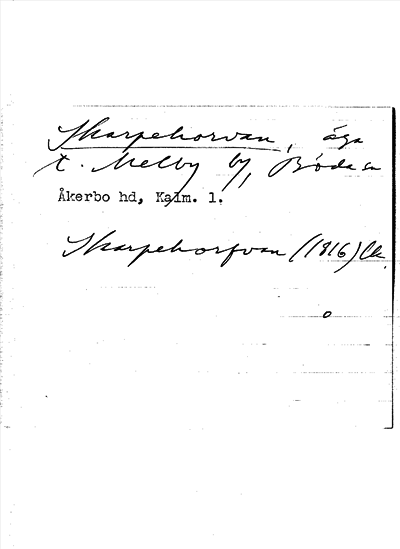 Skarpehorvan, äga
t. Melby by, Böda sn
Åkerbo hd, Kalm. l.
Skarpehorfvan (1816) Ck.
o